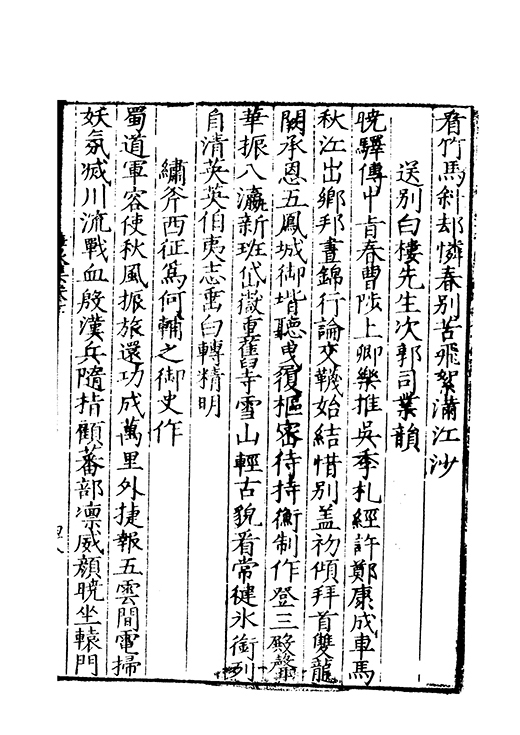 看竹馬斜却憐春別苦飛絮滿江沙
送別白樓先生次郭司業韻
曉驛傳中肯春曹陟上卿樂推吳季札經許鄭康成車馬
秋江出鄉邦晝錦行論交襪始結惜別盖初傾拜首雙龍
闕承恩五鳳城御堦聽曳履樞密待持衡制作登三殿聲
華振八瀛新班岱嶽重舊寺雪山輕古貌看常健氷銜列
自清英英伯夷志垂白轉精明
繡斧西征爲何輔之御史作
蜀道軍容使秋風振旅還功成萬里外捷報五雲間電掃
妖氛滅川流戰血殷漢兵隨指顧蕃部凛威顏曉坐轅門